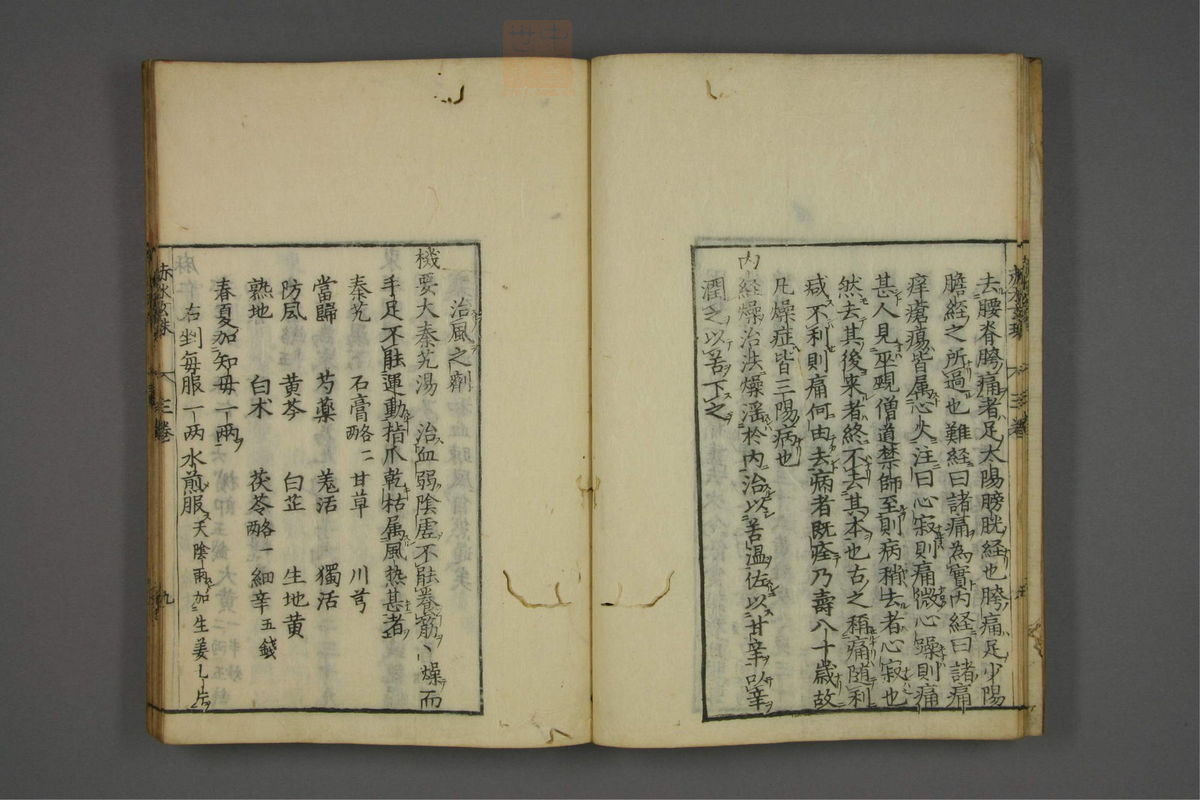 去腰脊胯痛者足太陽膀胱経也胯痛足少陽
膽経之所過也難経曰諸痛為實内経曰諸痛
痒瘡瘍皆属心火注曰心寂則痛微心躁則痛
甚人見平覡僧道禁師至則病稍去者心寂也
然去其後来者終不去其本也古之稱痛随利
减不利則痛何由去病者既痊乃壽八十歳故
凡燥症皆三陽病也
内経燥治法燥淫於内治以苦温佐以甘辛以辛
潤之以苦下之
治風之劑
機要大秦艽湯 治血弱陰虚不能養筋〻燥而
手足不能運動指爪乾枯属風热甚者
秦艽 石膏各二両 甘草 川芎
當歸 芍藥 羗活 獨活
防風 黄芩 白芷 生地黄
熟地 白术 茯苓各一両 細辛五錢
春夏加知毋一両
右剉毎服一両水煎服天陰雨加生姜七片
赤水玄珠 三巻 九